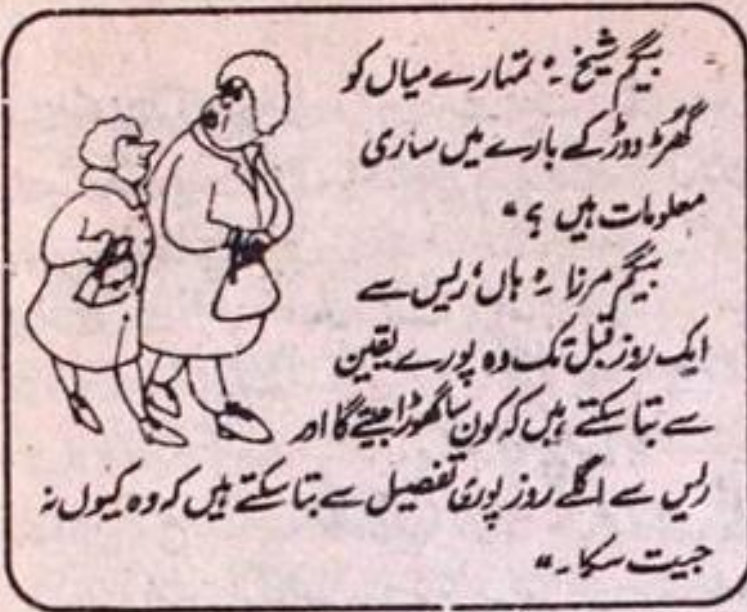 بیگم شیخ :“ تمہارے میاں کو
گھڑ دوڑ کے بارے میں ساری
معلومات ہیں ؟“
بیگم مرزا :“ ہاں، ریس سے
ایک روز قبل تک وہ پورے یقین
سے بتا سکتے ہیں کہ کون سا گھوڑا جیتے گا اور
ریس سے اگلے روز پوری تفصیل سے بتا سکتے ہیں کہ وہ کیوں نہ
جیت سکا ۔“